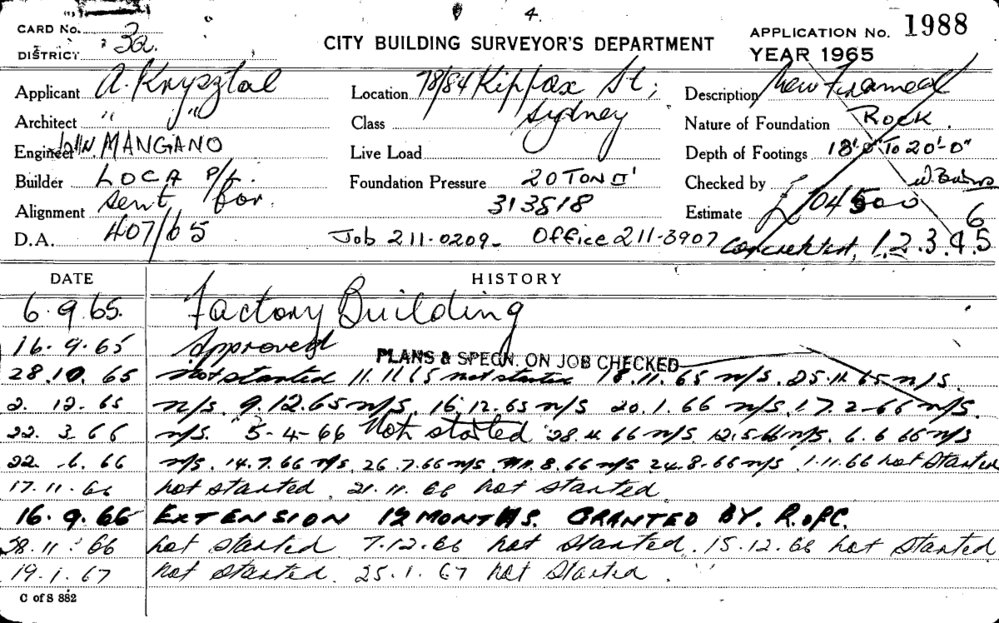 4.
CARD No. 32. CITY BUILDING SURVEYOR'S DEPARTMENT APPLICATION No. 1988
DISTRICT YEAR 1965
Applicant A. Krysztal Location 78/84 Kippax St; Description New Framed
Architect " " Class Sydney Nature of Foundation ROCK.
Engineer John MANGANO Live Load Depth of Footings 18'-0" TO 20'-0"
Builder LOCA P/L. Foundation Pressure 20 TON □' Checked by
Alignment sent for. 313518 Estimate £104500 6
D.A. 407/65 Job 211-0209- Office 211-3907 1.2.3.4.5
DATE HISTORY
6.9.65. Factory Building
16.9.65 Approved PLANS & SPECN. ON JOB CHECKED
28.10.65 not started 11.11.65 not started 18.11.65 n/s. 25.11.65 n/s.
2.12.65 n/s. 9.12.65 n/s. 16.12.65 n/s 20.1.66 n/s. 17.2-66 n/s.
22.3.66 n/s. 5-4-66 Not started 28.4.66 n/s 12.5.66 n/s. 6.6.66 n/s
22.6.66 n/s. 14.7.66 n/s. 26.7.66 n/s. 8.66 n/s 24.8.66 n/s. 1.11.66 not started
17.11.66 not started. 21.11.66 not started.
16.9.66 EXTENSION 12 MONTHS. GRANTED BY.
28.11.66 not started 7.12.66 not started. 15.12.66 not started
19.1.67 not started. 25.1.67 not started.
C of S 882